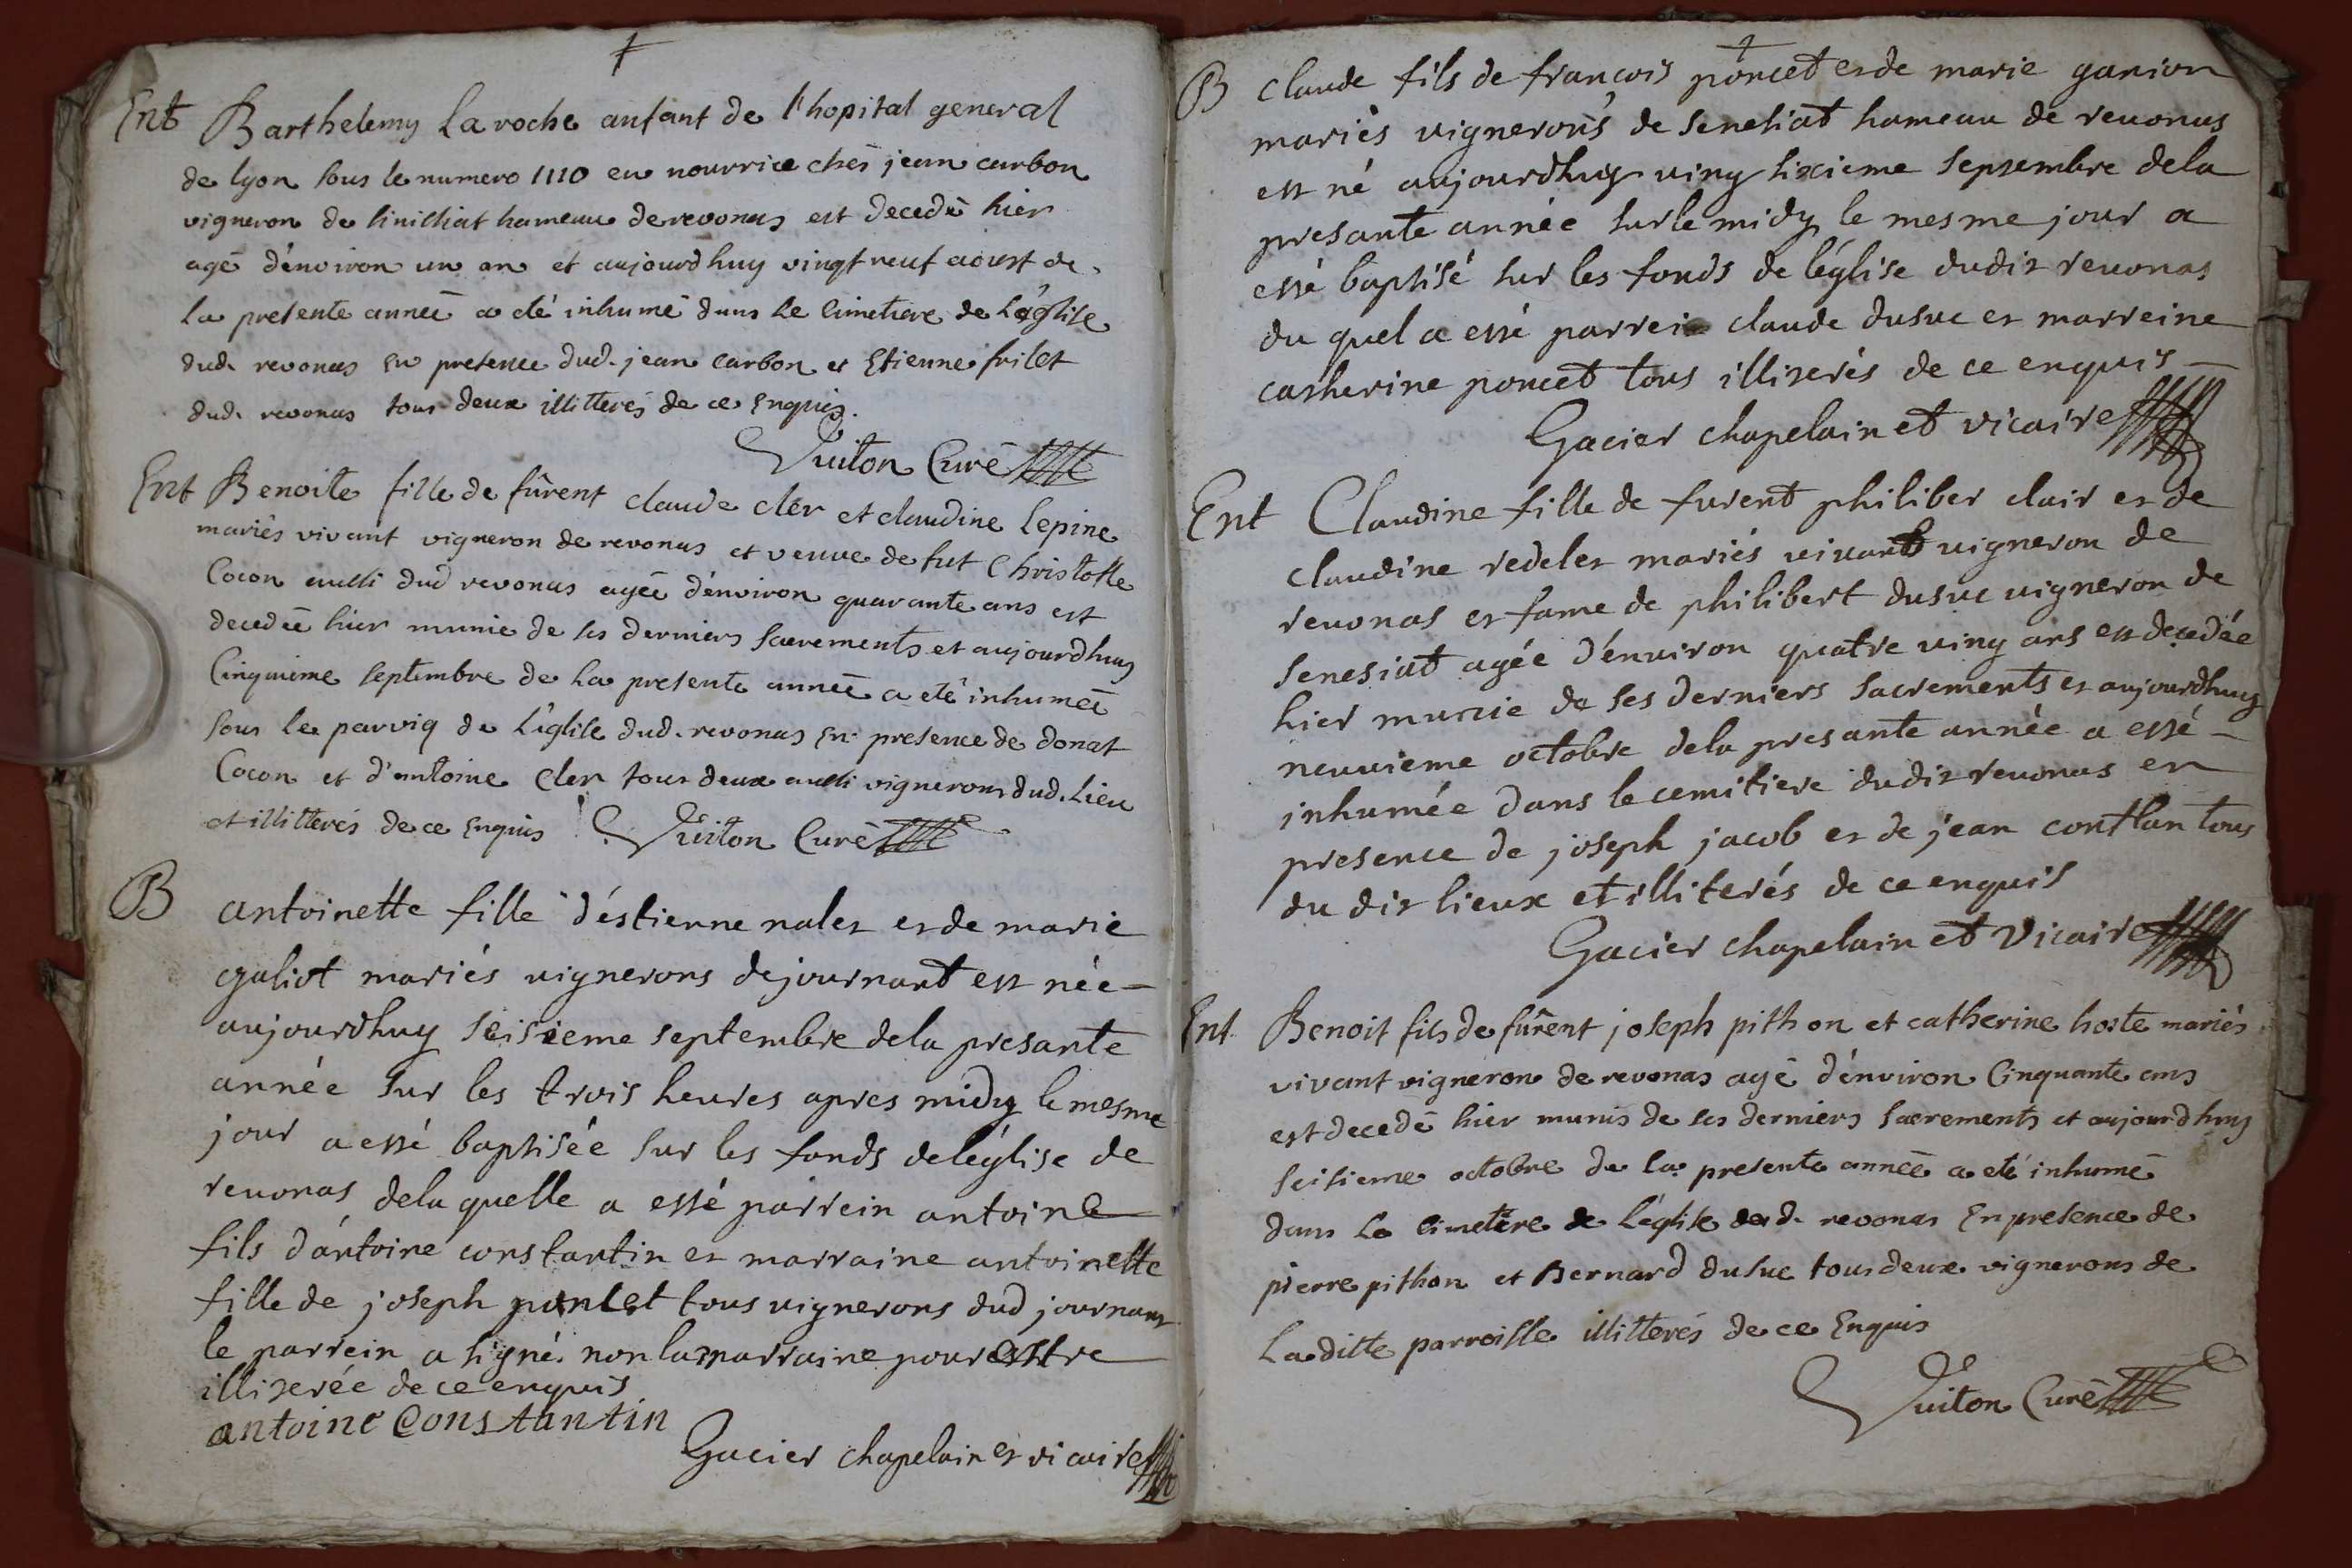 Ent Barthelemy Laroche anfant de l'hopital general
de lyon sous le numero 1110 en nourrice chés jean carbon
vigneron de sinissiat hameau de revonas est decedé hier
agé d'environ un an et aujourdhuy vingt neuf aoust de
la presente année a été inhumé dans le cimetiere de L'église
dud. revonas en presence dud. jean carbon et Etienne frilet
dud. revonas tous deux illitterés de ce Enquis.
Vuiton Curé
Ent Benoite fille de fûrent claude clér et claudine Lepine
mariés vivant vigneron de revonas et veuve de fut Christofle
Cocon aussi dud revonas agée d'environ quarante ans est
decedée hier munie de ses derniers sacrements et aujourdhuy
Cinquieme septembre de la presente année a eté inhumée
sous le parviq de L'église dud. revonas En presence de donat
Cocon et d'antoine Cler tous deux aussi vignerons dud. Lieu
et illitterés de ce Enquis Vuiton Curé
B antoinette fille d'éstienne nalet et de marie
galiot mariés vignerons de journant est née
aujourdhuy seisieme septembre de la presante
année sur les trois heures apres midy le mesme
jour a esté baptisée sur les fonds de léglise de
revonas de la quelle a esté parrein antoine
fils d'antoine constantin et marraine antoinette
fille de joseph poncet tous vignerons dud journant
le parrein a signé non la marraine pour estre
illiterée de ce enquis
antoine Constantin
Gacier chapelain et vicaire
B claude fils de francois poncet et de marie ganion
mariés vignerons de senesiat hameau de revonas
est né aujourdhuy ving sixieme septembre de la
presante année sur le midy le mesme jour a
esté baptisé sur les fonds de léglise dudit revonas
du quel a esté parrein claude dusuc et marreine
catherine poncet tous illiterés de ce enquis
Gacier chapelain et vicaire
Ent Claudine fille de furent philiber clair et de
claudine redelet mariés vivant vigneron de
revonas et fame de philibert dusuc vigneron de
senesiat agée d'énviron quatre ving ans est decedée
hier municie de ses derniers sacrements et aujourdhuy
neuvieme octobre de la presante année a esté
inhumée dans le cemitiere dudit revonas en
presence de joseph jacob et de jean conflan tous
du dit lieux et illiterés de ce enquis
Gacier chapelain et vicaire
Ent Benoit fils de fûrent joseph pithon et catherine hoste mariés
vivant vigneron de revonas agé d'énviron Cinquante ans
est decedé hier munis de ses derniers sacrements et aujourdhuy
seisieme octobre de la presente année a eté inhumé
dans Le cimetere de L'église dud. revonas En presence de
pierre pithon et Bernard dusuc tous deux vignerons de
La ditte parroisse illitterés de ce Enquis
Vuiton Curé